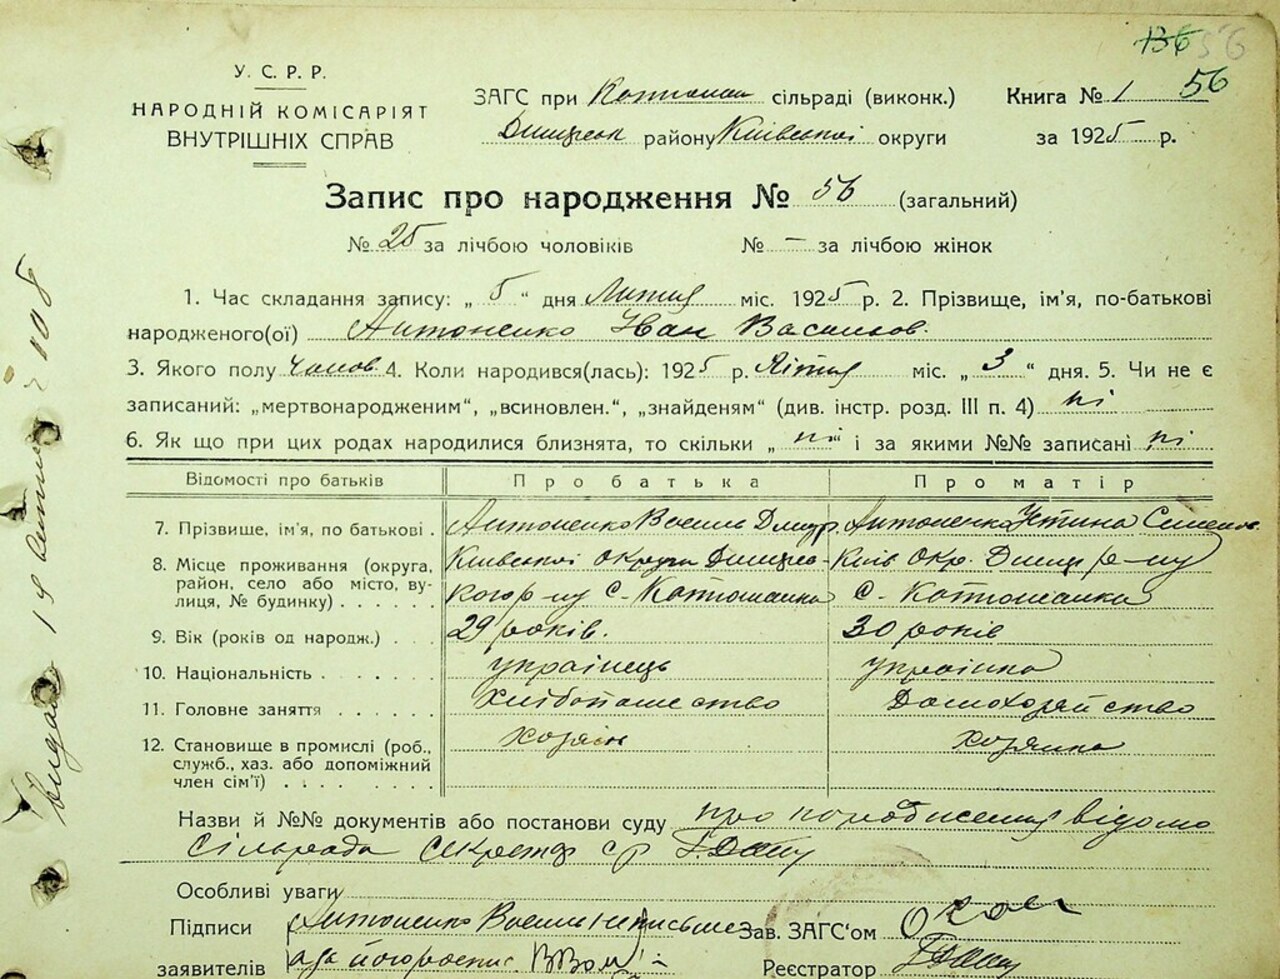 136 56
У. С. Р. Р.
НАРОДНІЙ КОМІСАРІЯТ
ВНУТРІШНІХ СПРАВ
ЗАГС при сільраді (виконк.)
Димерськ району Київської округи
Книга № 1 56
за 1925 р.
Запис про народження № 56 (загальний)
№ 25 за лічбою чоловіків № – за лічбою жінок
1. Час складання запису: „ 5 “ дня Лютия міс. 1925 р. 2. Прізвище, ім'я, по-батькові
народженого(ої) Антоненко Іван Васильов.
3. Якого полу чолов. 4. Коли народився(лась): 1925 р. міс. „ 3 “ дня. 5. Чи не є
записаний: „мертвонародженим“, „всиновлен.“, „знайденям“ (див. інстр. розд. III п. 4) ні
6. Як що при цих родах народилися близнята, то скільки „ ні “ і за якими №№ записані ні
Відомості про батьків Про батька Про матір
7. Прізвище, ім'я, по батькові . Антоненко Василь Дмитр. Антоненко Устина Семенов.
8. Місце проживання (округа, Київської округи Димерс- Київ Окр. Димер р-ну
район, село або місто, ву-
лиця, № будинку) . . . . . . кого р-ну с. с.
9. Вік (років од народж.) . . . 29 років. 30 років
10. Національність . . . . . . українець українка
11. Головне заняття . . . . . . хлібопашество Домохозяйство
12. Становище в промислі (роб., хозяїн хозяйка
служб., хаз. або допоміжний
член сім'ї) . . . . . . .
Назви й №№ документів або постанови суду про відомо
Сільрада Секретар с/р
Особливі уваги
Підписи Антоненко Василь Зав. ЗАГС'ом
заявителів Реєстратор